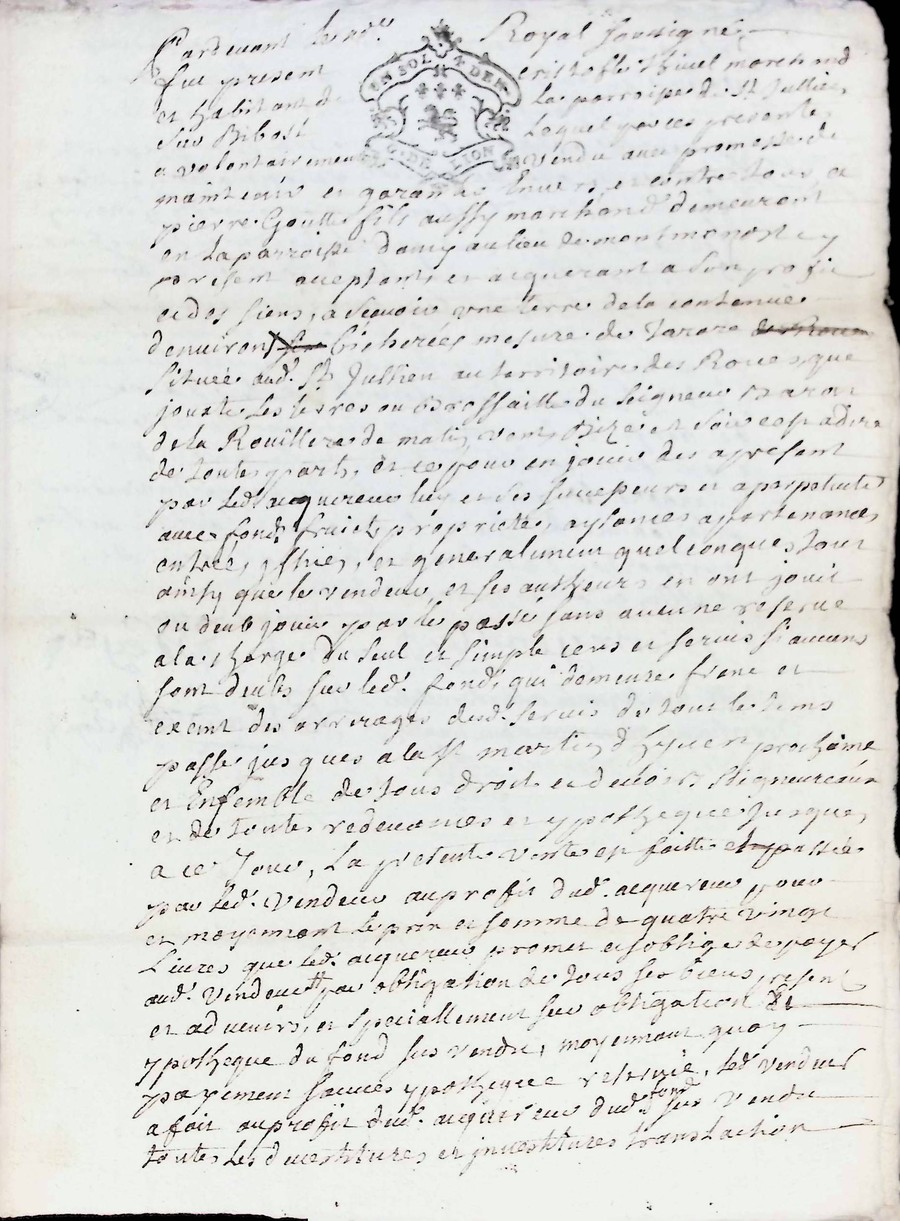 Pardevant le no.re Royal soussigné
fut present cristofle thivel marchand
et habitant de la parroisse de St Jullien
sur Bibost lequel par ces presente,
a volontairemen vendu avec promesse de
maintenir et garantir Envers et contre tous, a
pierre Goutte fils aussy marchand demeurant
en la parroisse dancy au lieu de montmonost cy
present aceptant et acquerant a son profit
et des siens, a scavoir une terre de la contenue
denviron six bicherées mesure de Tarare
située aud. St Jullien au territoire des Roues, que
jouxte les terres ou Brossaille du Seigneur Baron
de la Rouillere de matin, vent, Bize et soir cest a dire
de toutes part, et ce pour en jouir des apresent
par led. acquereur luy et ses successeurs et a perpetuité
avec fond, fruict, proprietés, aysances apartenances,
entrées, yssues, et generalement quelconques, tout
ainsy que le vendeur et ses autheurs en ont jouit
ou deub jouir par le passé sans aucune reserve
a la charge du seul et simple cens et servis si aucuns
sont deubs sur led. fond, qui demeure franc et
exemt des arrerages dud. servis de tout le tems
passé jusques a la St martin d'hyver prochaine
et Ensemble de tous droit et devoirs seigneureaux
et de toutes redevances et ypotheque jusques
a ce Jour, La presente vente est faitte et passée
par led. vendeur au profit dud. acquereur pour
et moyennant le prix et somme de quatre vingt
Livres que led. acquereur promet et soblige de payer
aud. vendeur par obligation de tous ses biens present
et advenirs, et speciallement sur obligation et
ypotheque du fond sus vendu, moyennant quoy
payement sauves ypotheque reservée, led. vendeur
a fait au profit dud. acquereur dud. fond sus vendu
toutes les devestitures et jnvestitures translation
EN SOL 4 DEN
G. DE LION